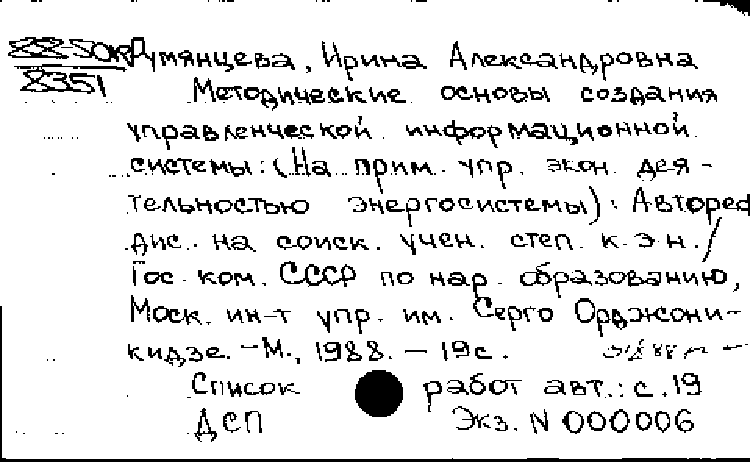 Румянцева, Ирина Александровна
8351 Методические основы создания
управленческой информационной
системы: (На прим. упр. экон. дея-
тельностью энергосистемы): Автореф
дис. на соиск. учен. степ. к.э.н./
Гос. ком. СССР по нар. образованию,
Моск. ин-т упр. им. Серго Орджони-
кидзе. -М., 1988. - 19с.
Список работ авт.: с.19
ДСП Экз. N 000006